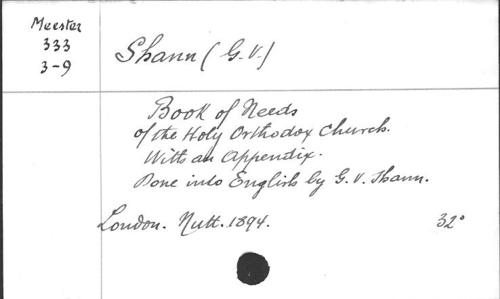 Meester
333
3-9
Shann (G.V.)
Book of Needs
of the Holy Orthodox Church.
With an Appendix.
Done into English by G.V. Shann.
London. Nutt. 1894. 32°